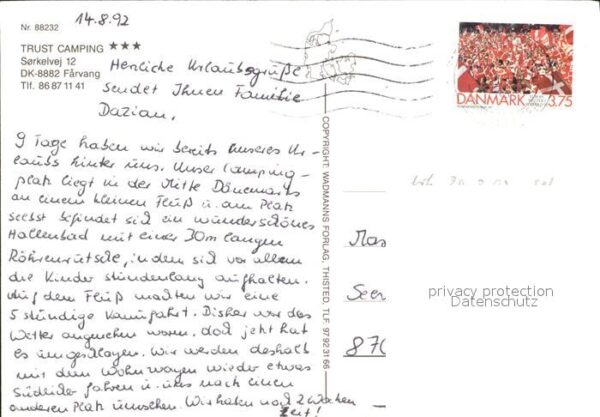 14.8.92
Nr. 88232
TRUST CAMPING ★★★
Sørkelvej 12
DK-8882 Fårvang
Tlf. 86 87 11 41
Herzliche Urlaubsgrüße
sendet Ihnen Familie
9 Tage haben wir bereits unseres Ur-
laubs hinter uns. Unser Camping-
platz liegt in der Mitte Dänemarks
an einem kleinen Fluß u. am Platz
selbst befindet sich ein wunderschönes
Hallenbad mit einer 30m langen
Röhrenrutsche, in dem sich vor allem
die Kinder stundenlang aufhalten.
Auf dem Fluß machten wir eine
5 stündige Kanufahrt. Bisher war das
Wetter angenehm warm, doch jetzt hat
es umgeschlagen. Wir werden deshalb
mit dem Wohnwagen wieder etwas
Südlicher fahren u. uns nach einem
anderen Platz umsehen. Wir haben noch 2 Wochen
Zeit!
COPYRIGHT: WADMANNS FORLAG, THISTED, TLF. 97 92 31 66
DANMARK 3.75
Seer
870
privacy protection
Datenschutz